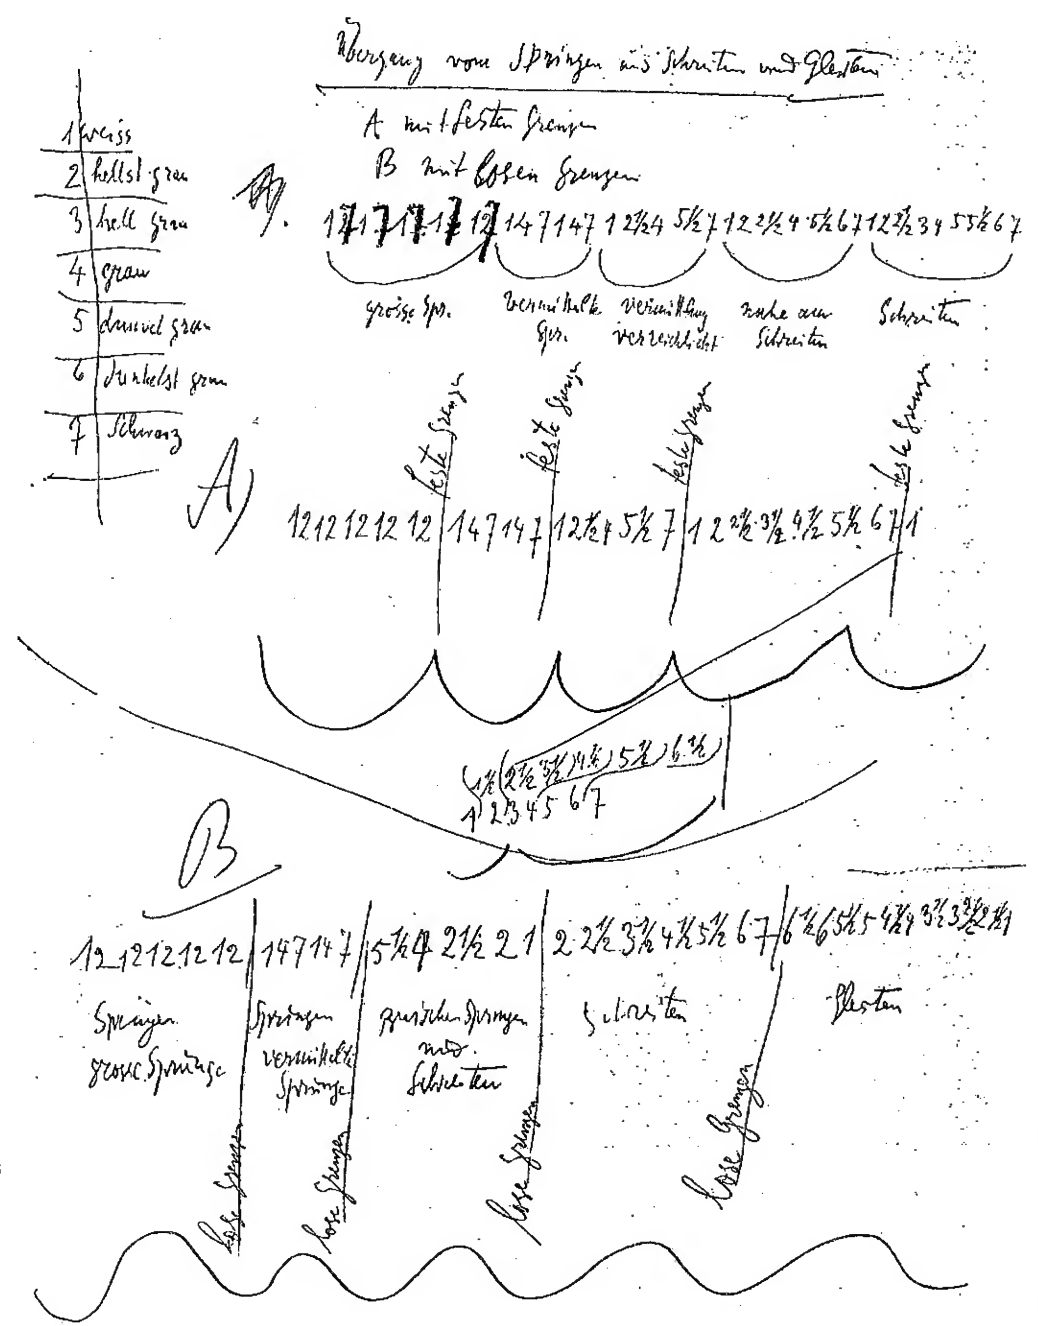 Übergang vom Springen ins Schreiten und Gleiten
A mit festen Grenzen
B mit losen Grenzen
1 weiss
2 hellst grau
3 hell grau
4 grau
5 dunkel grau
6 dunkelst grau
7 Schwarz
A.
17 17 17 17 17 147 147 1 2½ 4 5½ 7 1 2 2½ 4 5½ 6 7 1 2 2½ 3 4 5 5½ 6 7
grosse Spr.
vermittelte Spr.
Vermittlung verreichlicht
nahe am Schreiten
Schreiten
feste Grenzen
feste Grenzen
feste Grenzen
feste Grenzen
A)
12 12 12 12 12 147 147 1 2½ 4 5½ 7 1 2 2½ 3½ 4½ 5½ 6 7 1
1½ 2½ 3½ 4½ 5½ 6½
1 2 3 4 5 6 7
B
12 12 12 12 12 147 147 5½ 4 2½ 2 1 2 2½ 3½ 4½ 5½ 6 7 6½ 6 5½ 5 4½ 4 3½ 3 2½ 2 1½ 1
Springen grosse Sprünge
Springen vermittelte Sprünge
zwischen Springen und Schreiten
Schreiten
Gleiten
lose Grenzen
lose Grenzen
lose Grenzen
lose Grenzen